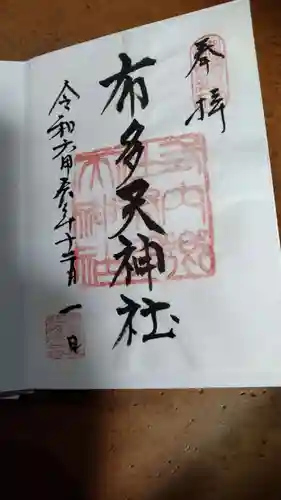 奉拝
布多天神社
令和六甲辰年十二月一日